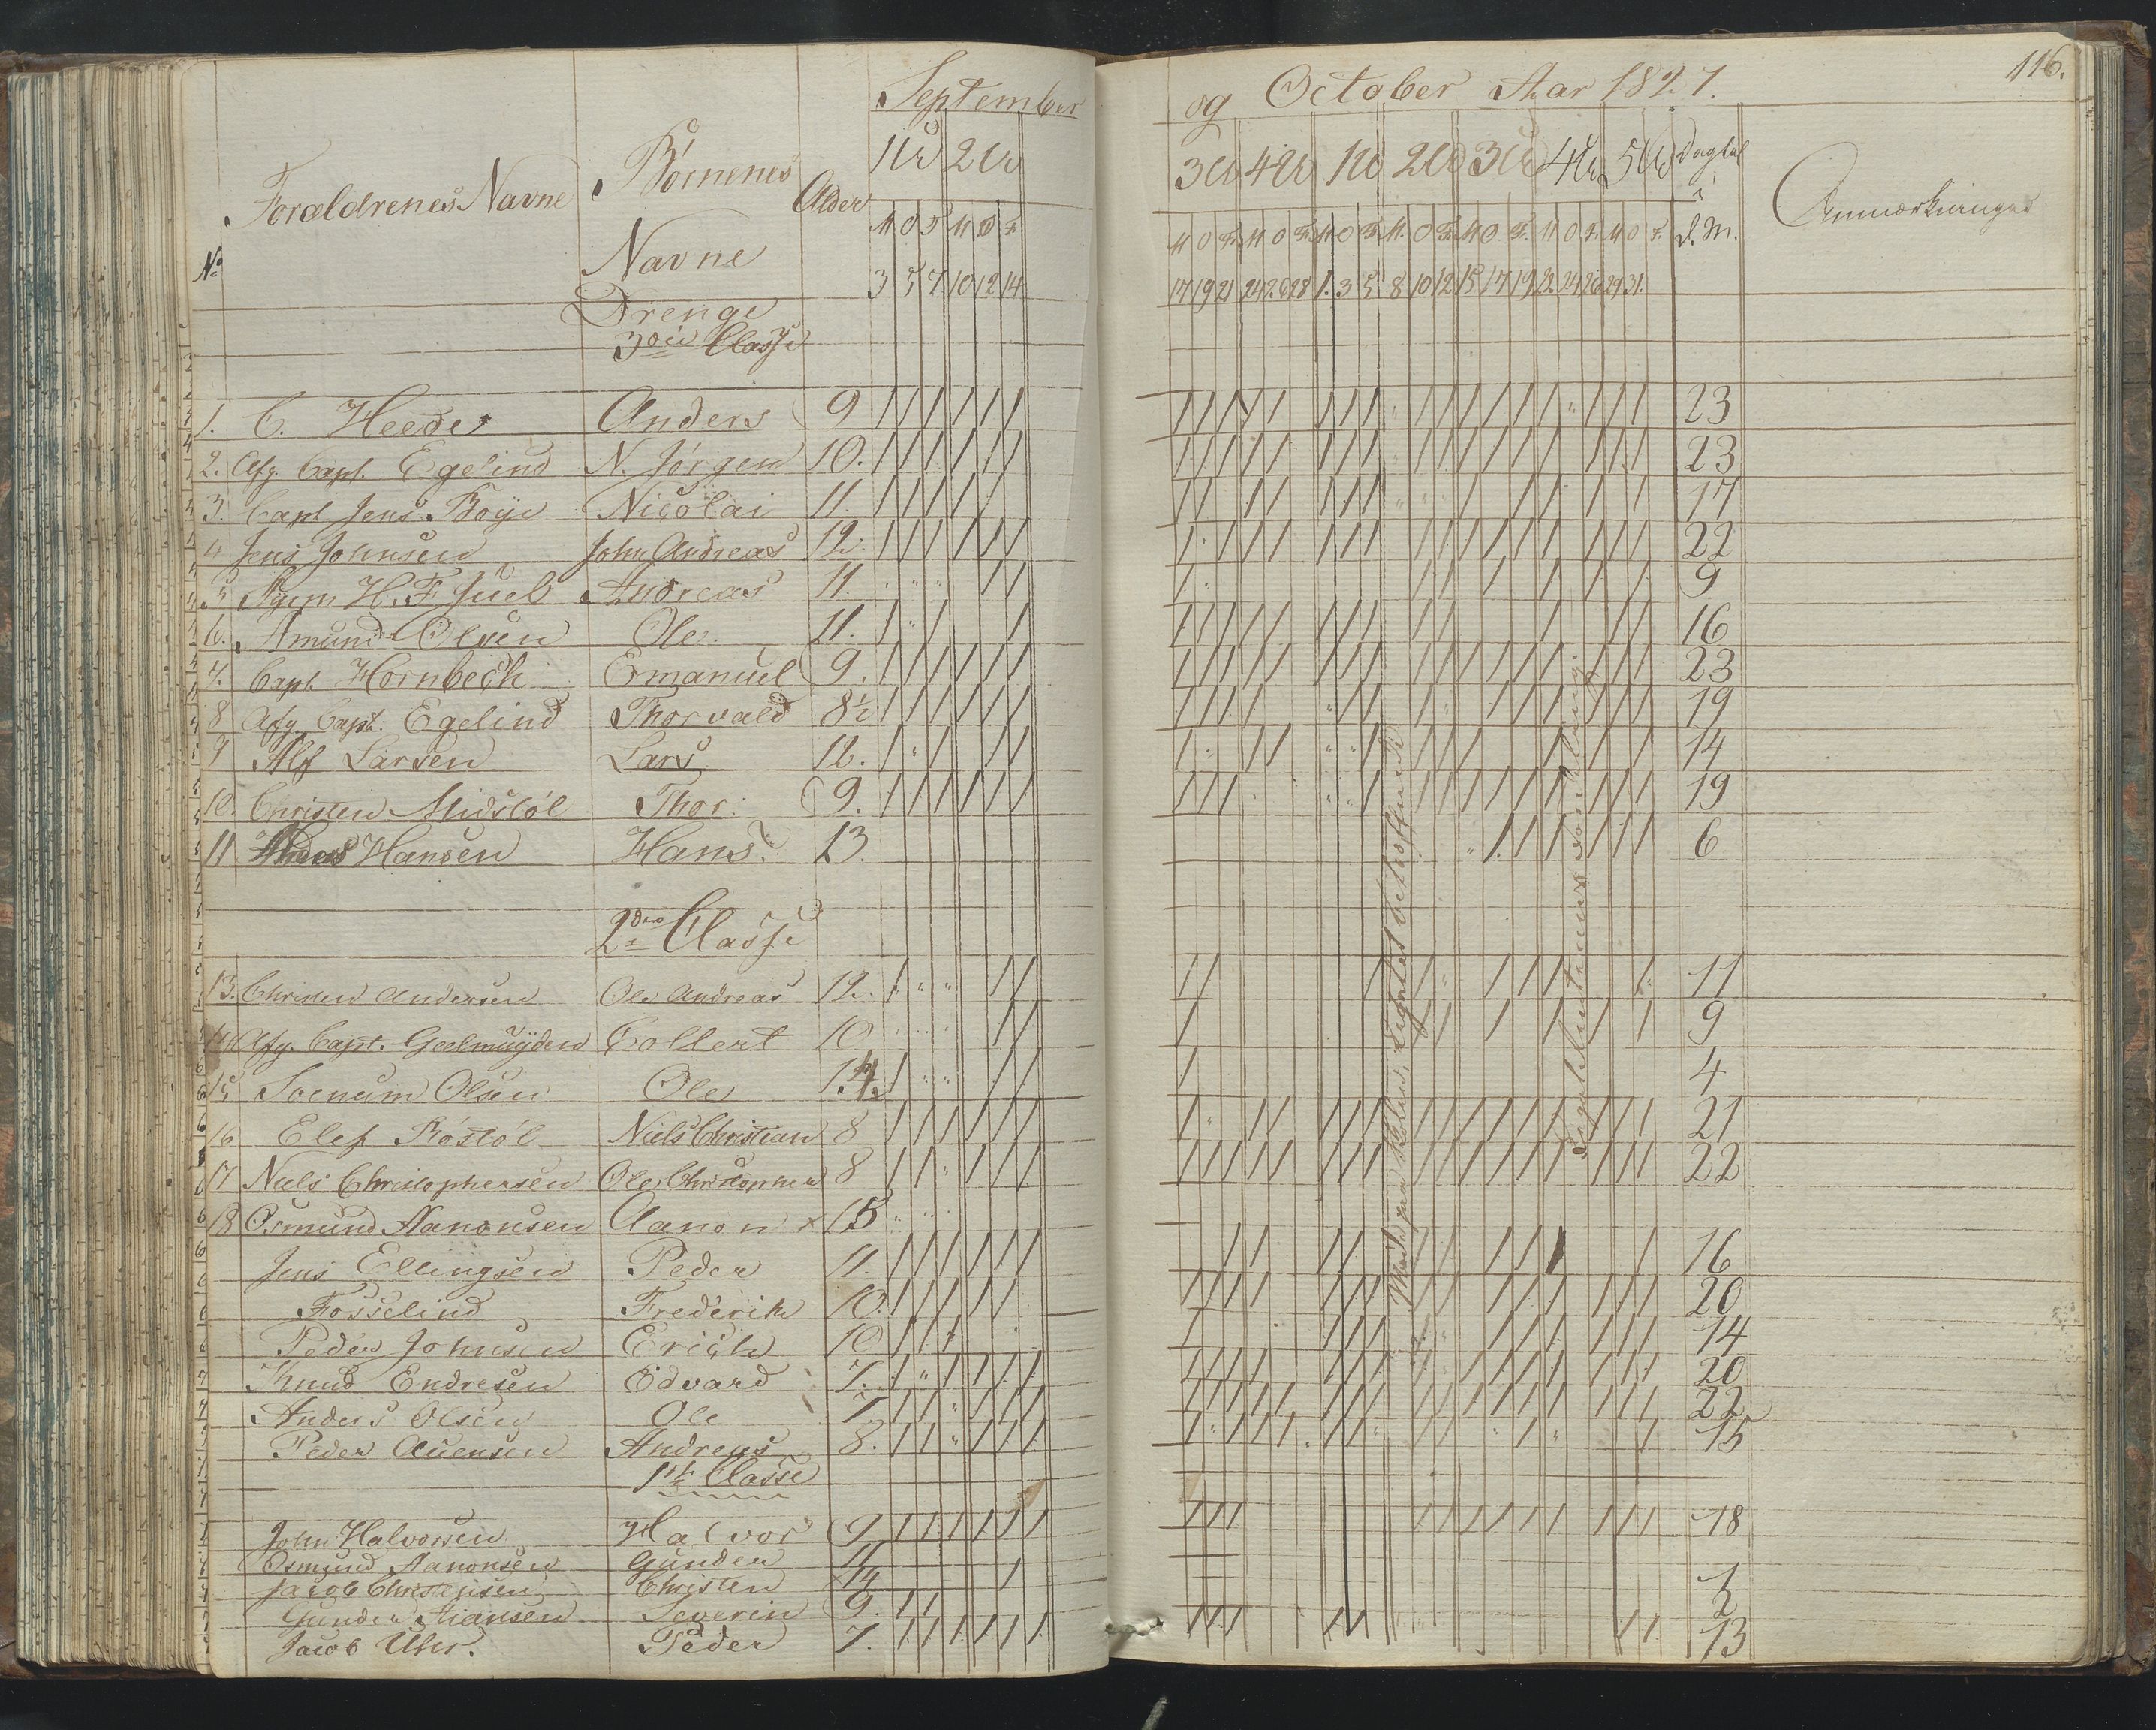 September
og October Aar 1827.
116.
No
Forældrenes Navne
Börnenes
Navne
Alder
1U 2U
3U 4U 1U 2U 3U 4U 5U
Dagtal
i
d. M.
Anmærkninger
M O F M O F
M O F M O F M O F M O F M O F M O F M O F
3 5 7 10 12 14
17 19 21 24 26 28 1. 3 5 8 10 12 15 17 19 22 24 26 29 31.
Drenge
3die Classe
1. C. Heede Anders 9 23
2. Afg. Capt. Egelind N. Jörgen 10. 23
3. Capt Jens Boye Nicolai 11. 17
4 Jens Johnsen John Andreas 12. 22
5 H. F. Juel Andreas 11. 9
6. Amund Olsen Ole. 11. 16
7. Capt. Hornbech Emanuel 9. 23
8 Afg. Capt. Egelind Thorvald 8½ 19
9 Alf Larsen Lars 12. 14
10. Christen Midtböl Thor. 9. 19
11 Hansen Hans 13. 6
2den Classe
13. Christen Andersen Ole Andreas 12. 11
14 Afg. Capt. Geelmuyden Collert 10 9
15 Olsen Ole 14. 4
16 Elef Röstöl Niels Christian 8 21
17 Niels Christophersen Ole Christopher 8 22
18 Osmund Aanonsen Aanon x 15
Jens Ellingsen Peder 11. 16
Fosselind Frederik 10. 20
Peder Johnsen Erich 10 14
Knud Endresen Edvard 7. 20
Anders Olsen Ole 7 22
Peder Auensen Andreas 8. 15
1ste Classe
John Halvorsen Halvor 9 18
Osmund Aanonsen Gunder 11
Jacob Christensen Christen 14 1
Gunder Severin 9. 2
Jacob Peder 7. 13